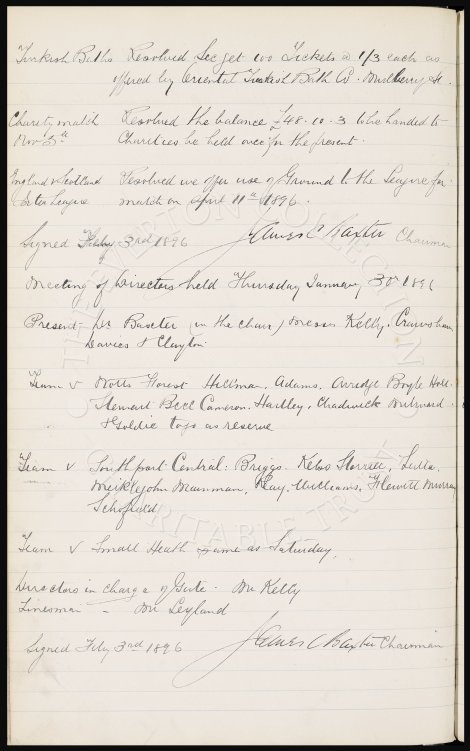 Turkish Baths Resolved Sec get 100 Tickets @ 1/3 each as
offered by Oriental Turkish Bath Co. Mulberry St.
Charity match Resolved the balance £48.10.3 to be handed to
Nov 5th Charities be held over for the present.
England v Scotland Resolved we offer use of Ground to the League for
Inter League match on April 11th 1896.
Signed Feby 3rd 1896 James C Baxter Chairman
Meeting of Directors held Thursday January 30th 1896
Present Dr Baxter (in the chair) Messrs Kelly, Crawshaw
Davies & Clayton
Team v Notts Forest Hillman, Adams, Arridge Boyle Holt.
Stewart Bell Cameron, Hartley, Chadwick Milward
& Goldie to go as reserve
Team v Southport Central: Briggs Kelso Storrier,
Meiklejohn Mainman, Elay, Williams, Hewitt Murray
Schofield
Team v Small Heath same as Saturday.
Directors in charge of Gate - Mr Kelly
Linesman - Mr Leyland
Signed Feby 3rd 1896 James C Baxter Chairman
THE EVERTON COLLECTION
CHARITABLE TRUST